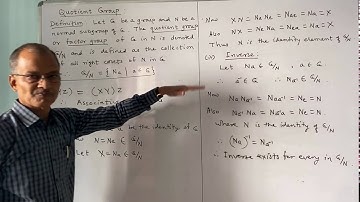 Quotient Group
Definition. Let G be a group and N be a
normal subgroup of G. The quotient group
or factor group of G
G/N and is defined as the collection
all right cosets of N in G
G/N = { Na | a ∈ G }
) = (XY)Z
Associati
X = Na ∈ G/N
Now XN = Na Ne = Nae = Na = X
Also NX = Ne Na = Nea = Na = X
Thus N is the identity element of G/N
Inverse:
Let Na ∈ G/N , a ∈ G
a⁻¹ ∈ G ∴ Na⁻¹ ∈ G/N
Now Na Na⁻¹ = Naa⁻¹ = Ne = N
Also Na⁻¹ Na = Na⁻¹a = Ne = N
Where N is the identity of G/N
∴ (Na)⁻¹ = Na⁻¹
∴ Inverse exists for every in G/N